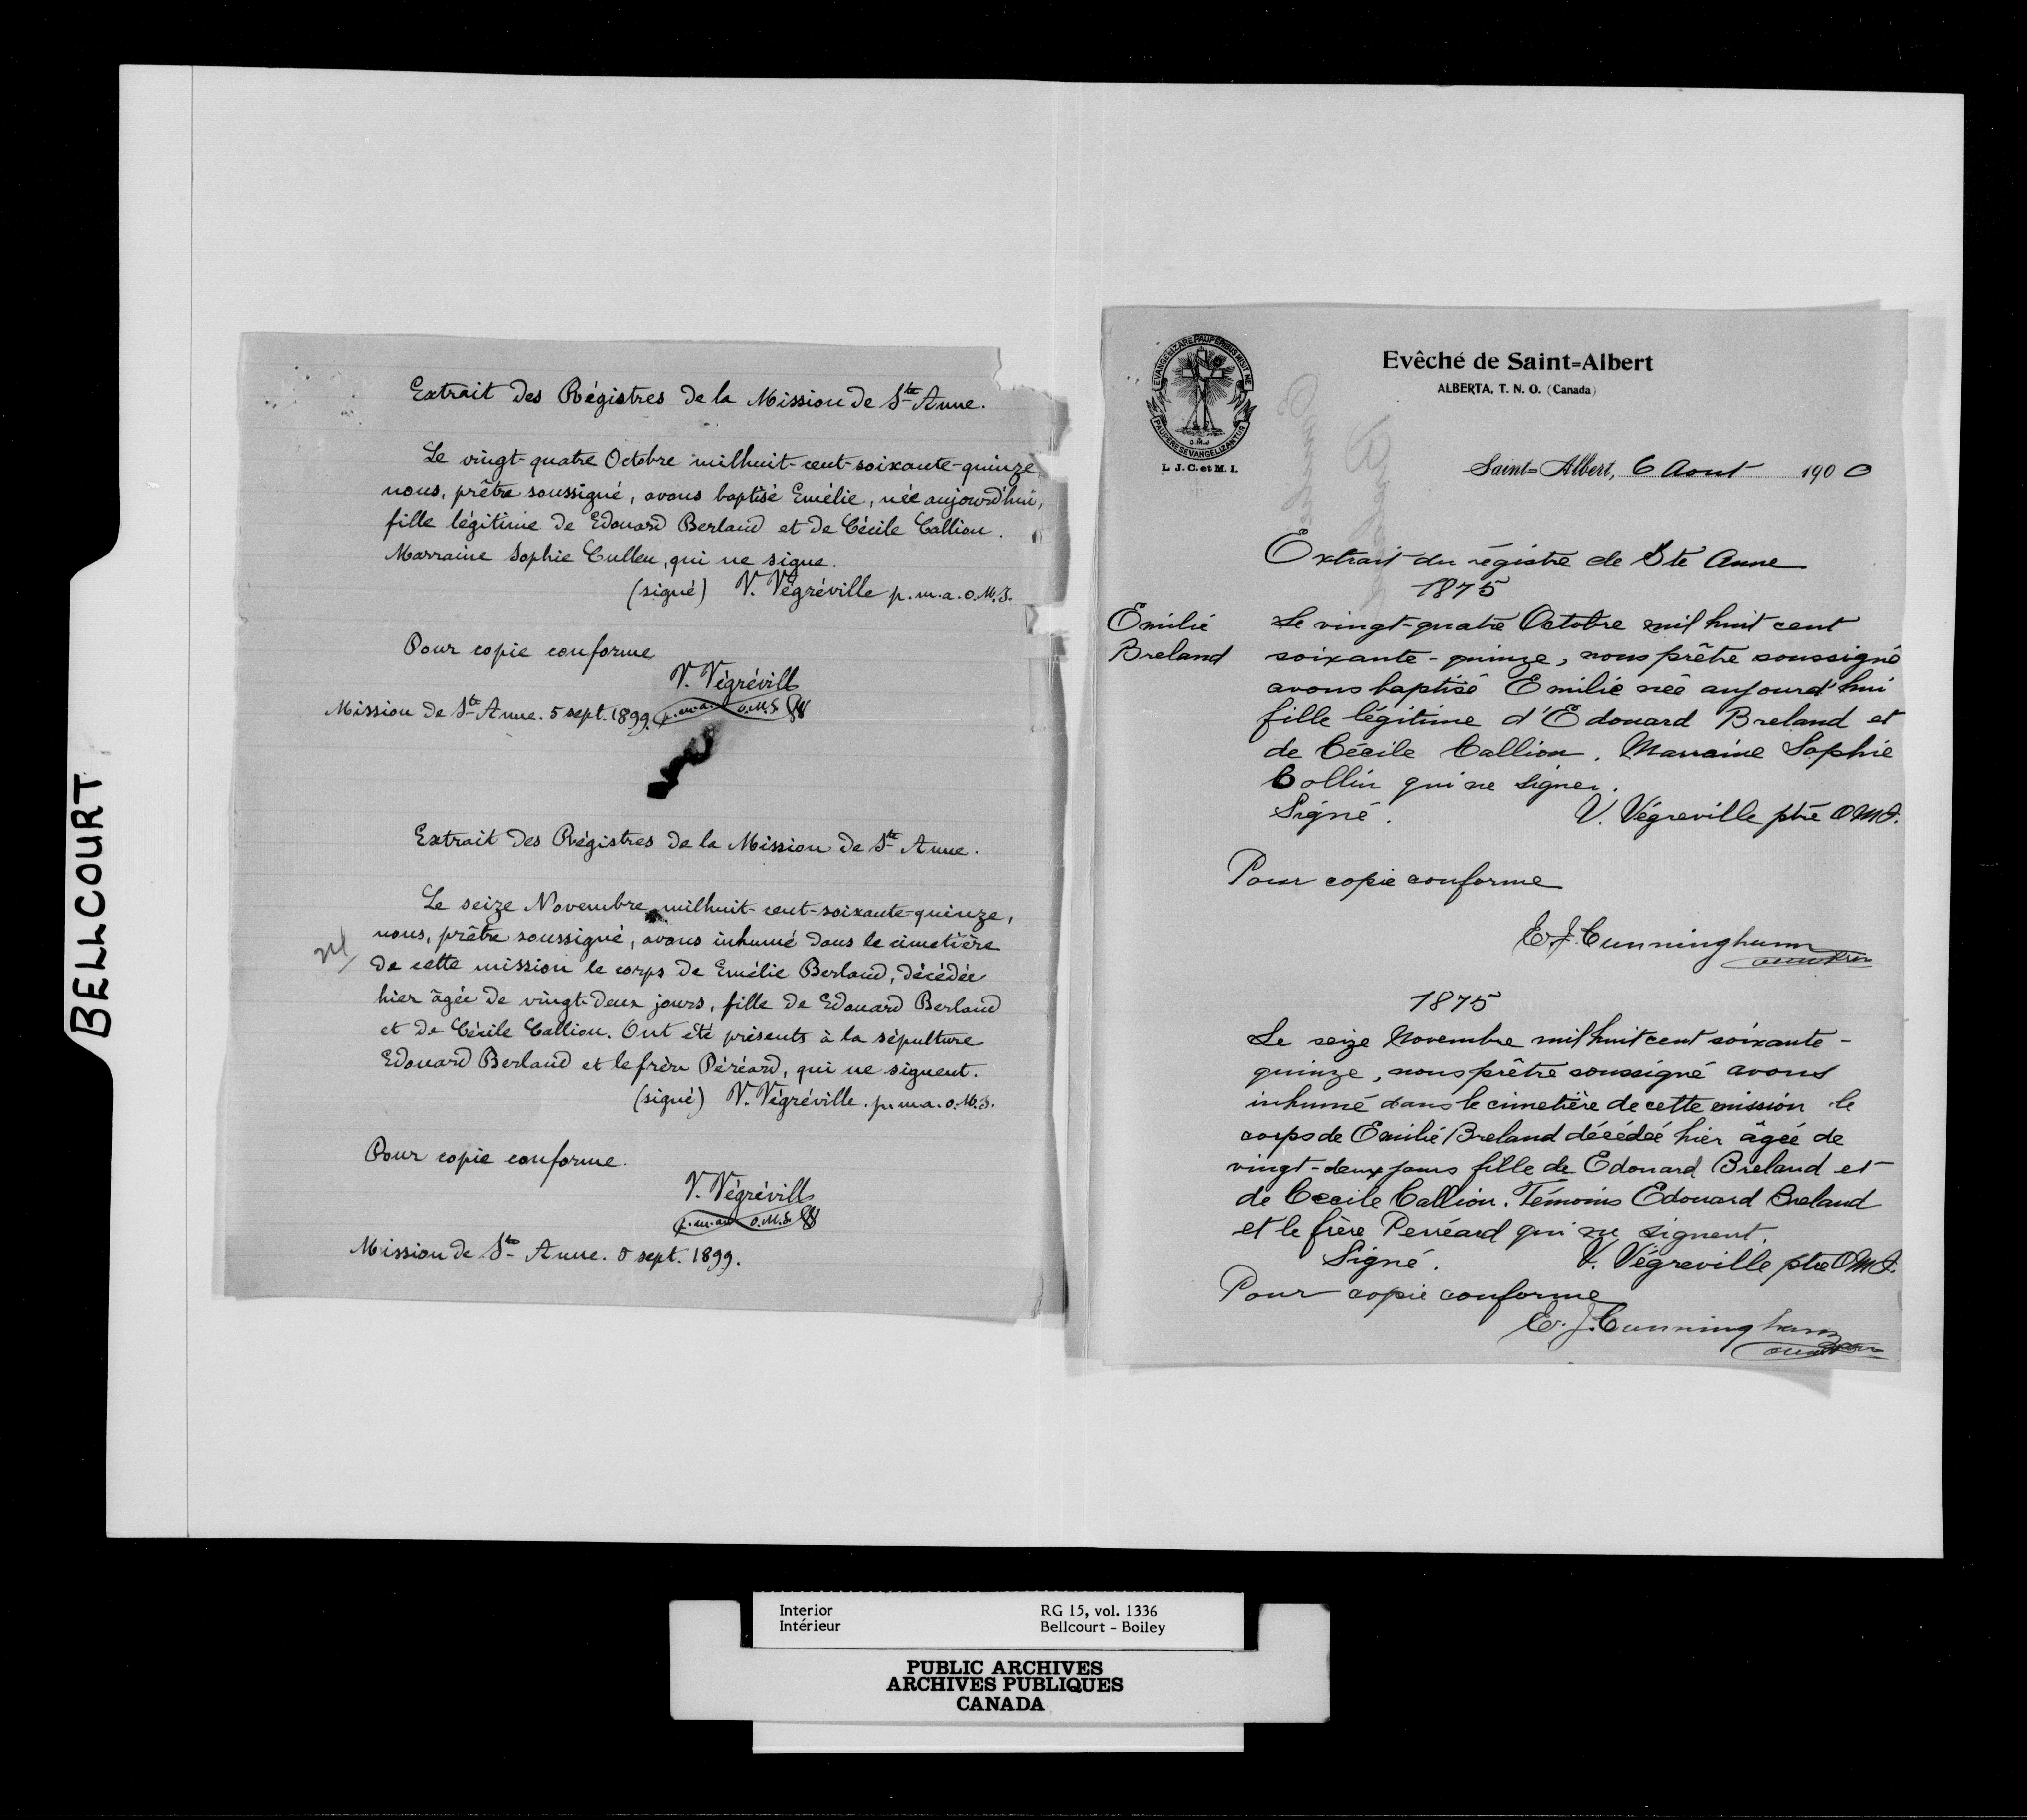 BELLCOURT
Extrait des Régistres de la Mission de Ste Anne.
Le vingt-quatre Octobre milhuit-cent-soixante-quinze,
nous, prêtre soussigné, avons baptisé Emélie, née aujourd'hui,
fille légitime de Edouard Berland et de Cécile Callion.
Marraine Sophie Cullen, qui ne signe.
(signé) V. Végréville p.m.a. o.M.J.
Pour copie conforme
V. Végrévill
p.m.a. o.M.J.
Mission de Ste Anne. 5 sept. 1899.
Extrait des Régistres de la Mission de Ste Anne.
Le seize Novembre milhuit-cent-soixante-quinze,
nous, prêtre soussigné, avons inhumé dans le cimetière
de cette mission le corps de Emélie Berland, décédée
hier âgée de vingt-deux jours, fille de Edouard Berland
et de Cécile Callion. Ont été présents à la sépulture
Edouard Berland et le frère Péréard, qui ne signent.
(signé) V. Végréville. p.m.a. o.M.J.
Pour copie conforme.
V. Végrévill
p.m.a. o.M.J.
Mission de Ste Anne. 5 sept. 1899.
EVANGELIZARE PAUPERIBUS MISIT ME
PAUPERES EVANGELIZANTUR
O.M.J
L. J. C. et M. I.
Evêché de Saint-Albert
ALBERTA, T. N. O. (Canada)
Saint-Albert, 6 Aout 1900
Extrait du régistre de Ste Anne
1875
Emilie
Breland
Le vingt-quatre Octobre mil huit cent
soixante-quinze, nous prêtre soussigné
avons baptisé Emilie née aujourd'hui
fille légitime d'Edouard Breland et
de Cécile Callion. Marraine Sophie
Collin qui ne signer.
Signé. V. Végreville ptre OMJ.
Pour copie conforme
E. J. Cunningham
1875
Le seize Novembre mil huit cent soixante-
quinze, nous prêtre soussigné avons
inhumé dans le cimetière de cette mission le
corps de Emilie Breland décédée hier âgée de
vingt-deux jours fille de Edouard Breland et
de Cecile Callion. Témoins Edouard Breland
et le frère Perréard qui ne signent.
Signé. V. Végreville ptre OMJ.
Pour copie conforme
E. J. Cunningham
Interior RG 15, vol. 1336
Intérieur Bellcourt - Boiley
PUBLIC ARCHIVES
ARCHIVES PUBLIQUES
CANADA